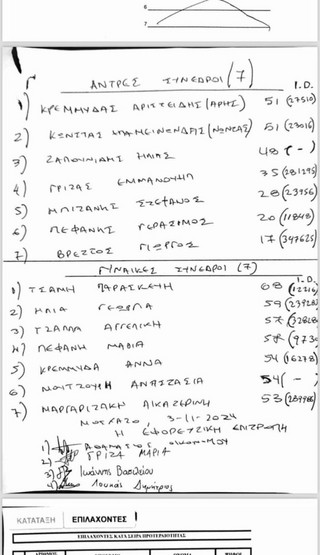 6
7
ΑΝΤΡΕΣ ΣΥΝΕΔΡΟΙ (7)
I.D.
1) ΚΡΕΜΜΥΔΑΣ ΑΡΙΣΤΕΙΔΗΣ (ΑΡΗΣ) 51 (27510)
2) ΚΩΝΤΤΑΣ 51 (23016)
3) ΖΑΠΟΥΝΙΔΗΣ ΗΛΙΑΣ 48 (-)
4) ΓΡΙΖΑΣ ΕΜΜΑΝΟΥΗΛ 35 (281295)
5) ΜΠΙΖΑΝΗΣ ΣΤΕΦΑΝΟΣ 28 (23956)
6) ΠΕΦΑΝΗΣ ΓΕΡΑΣΙΜΟΣ 20 (11848)
7) ΒΡΕΣΤΟΣ ΓΙΩΡΓΟΣ 17 (347625)
ΓΥΝΑΙΚΕΣ ΣΥΝΕΔΡΟΙ (7)
I.D.
1) ΤΣΑΜΗ ΠΑΡΑΣΚΕΥΗ 68 (12216)
2) ΗΛΙΑ ΓΕΩΡΓΙΑ 59
3) ΤΖΑΛΛΑ ΑΓΓΕΛΙΚΗ 57
4) ΠΕΦΑΝΗ ΜΑΡΙΑ
5) ΚΡΕΜΜΥΔΑ ΑΝΝΑ 54 (16278)
6) ΑΝΑΣΤΑΣΙΑ 54 (-)
7) ΜΑΡΓΑΡΙΖΑΚΗ ΑΙΚΑΤΕΡΙΝΗ 53
ΜΟΣΧΑΤΟ, 3-11-2024
Η ΕΦΟΡΕΥΤΙΚΗ ΕΠΙΤΡΟΠΗ
1) ΑΘΑΝΑΣΙΟΣ ΟΙΚΟΝΟΜΟΥ
2) ΓΡΙΖΑ ΜΑΡΙΑ
3) Ιωάννης Βασιλείου
4) Λουκάς Δημήτριος
ΚΑΤΑΤΑΞΗ ΕΠΙΛΑΧΟΝΤΕΣ
ΕΠΙΛΑΧΟΝΤΕΣ ΚΑΤΑ ΣΕΙΡΑ ΠΡΟΤΕΡΑΙΟΤΗΤΑΣ